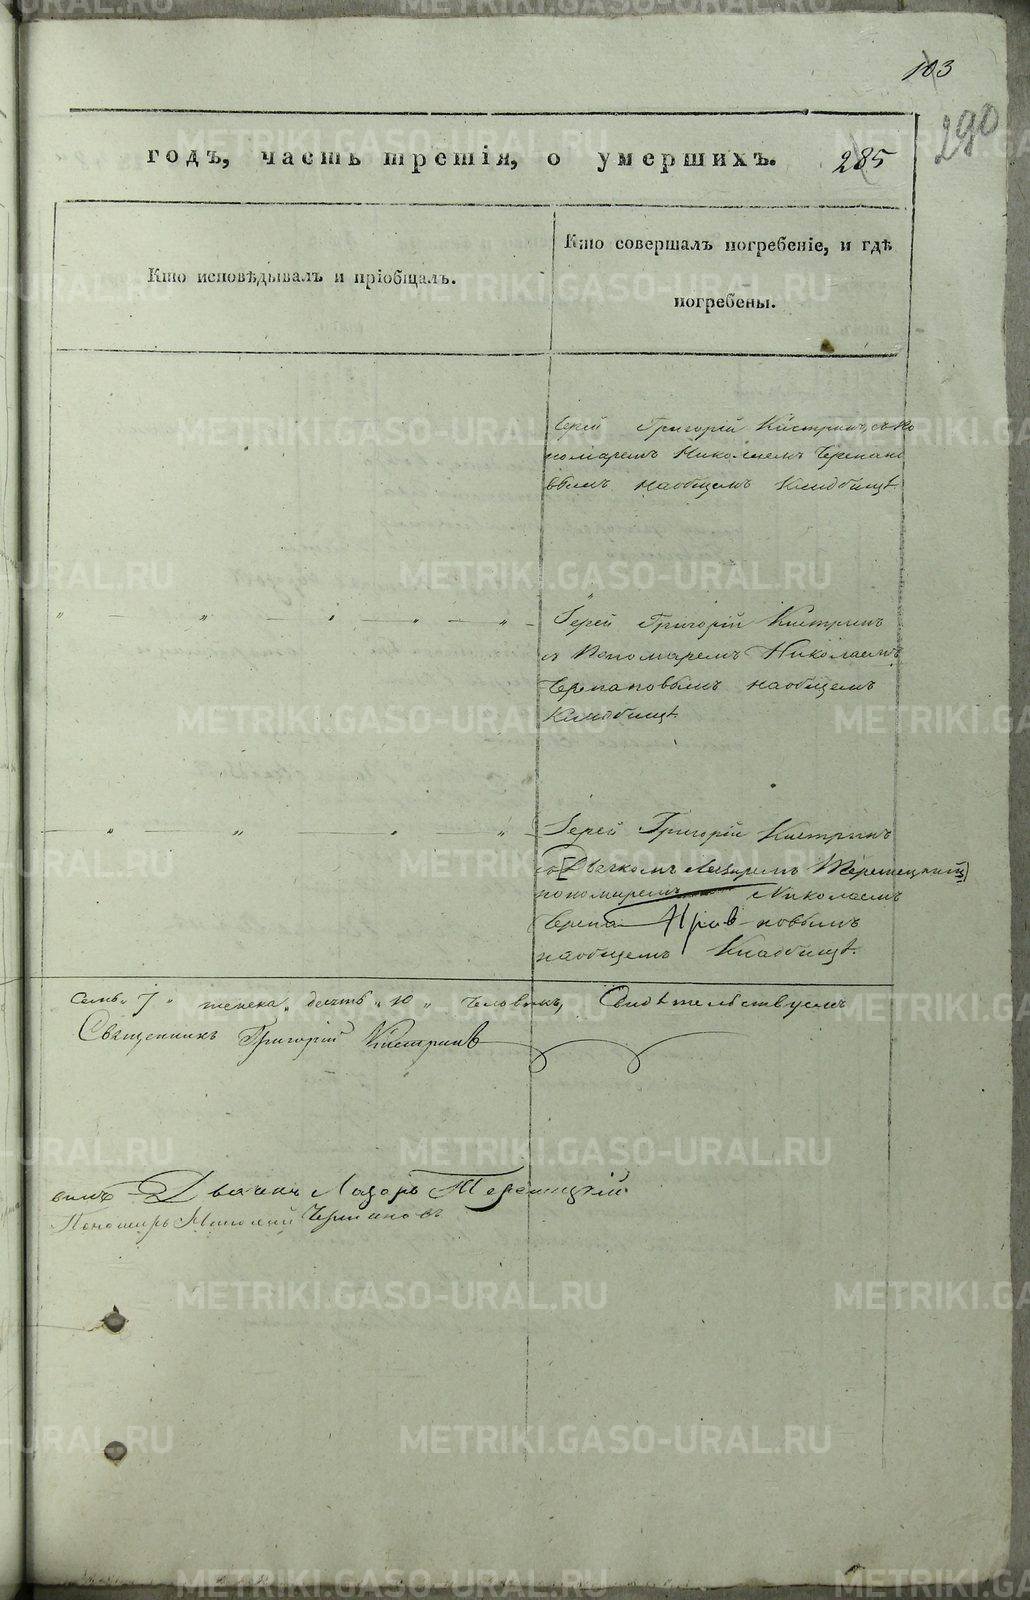 103
290
годъ, часть третія, о умершихъ. 285
Кто исповѣдывалъ и пріобщалъ.
Кто совершалъ погребеніе, и гдѣ
погребены.
Іерей Григорій Кистринъ, съ по
номаремъ Николаемъ Черепано
вымъ наобщемъ Кладбищѣ
Іерей Григорій Кистринъ
съ Пономаремъ Николаемъ
Черепановымъ наобщемъ
Кладбищѣ.
Іерей Григорій Кистринъ
Дьячкомъ Лазаремъ
пономаремъ Николаемъ
Черепа новымъ
наобщемъ Кладбищѣ.
семь „7„ женска „десять „10„ Человѣкъ, Свидѣтельствуемъ
Священникъ Григорій Кистринъ
Дьячекъ Лазарь
Пономарь Николай Черепановъ
METRIKI.GASO-URAL.RU